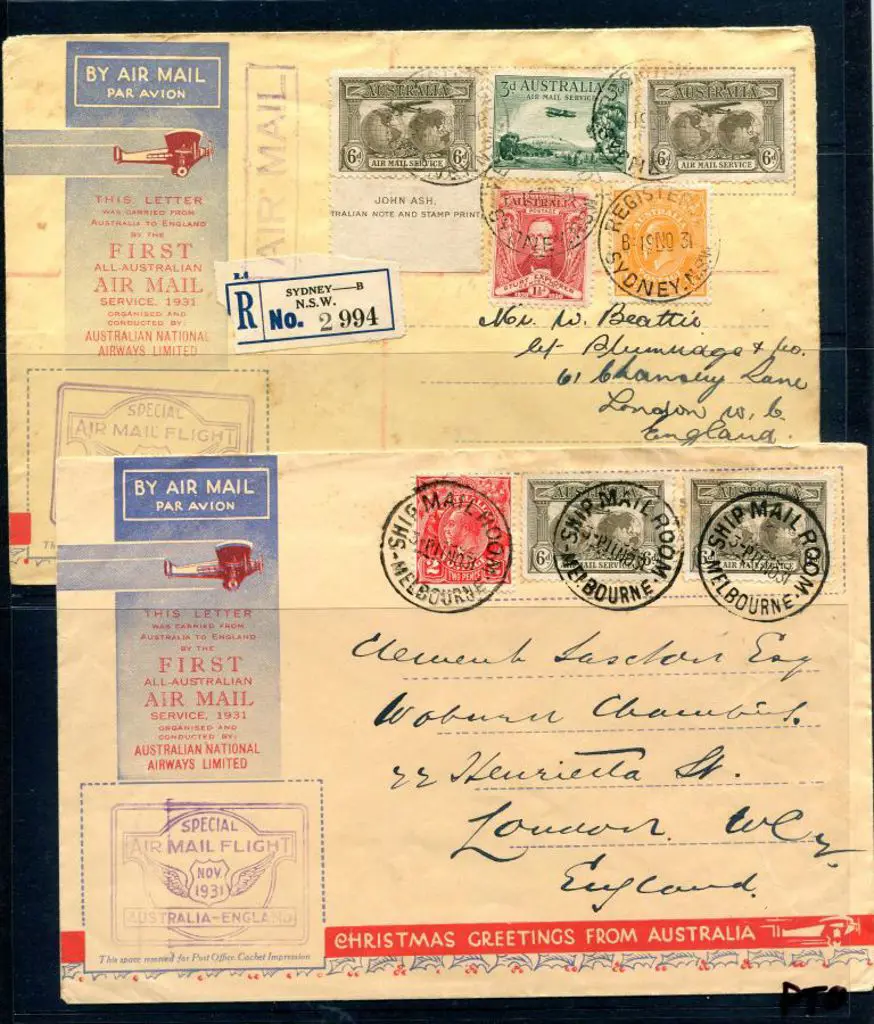 BY AIR MAIL
PAR AVION
THIS LETTER
WAS CARRIED FROM
AUSTRALIA TO ENGLAND
BY THE
FIRST
ALL-AUSTRALIAN
AIR MAIL
SERVICE, 1931
ORGANISED AND
CONDUCTED BY:
AUSTRALIAN NATIONAL
AIRWAYS LIMITED
AIR MAIL
AUSTRALIA
6d 6d
AIR MAIL SERVICE
3d AUSTRALIA 3d
AIR MAIL SERVICE
AUSTRALIA
6d 6d
AIR MAIL SERVICE
JOHN ASH,
TRALIAN NOTE AND STAMP PRINT
AUSTRALIA
POSTAGE
STURT EXPLORER
REGISTERED
B-19 NO 31
SYDNEY. N.S.W
R
SYDNEY—B
N.S.W.
No. 2994
Mr. W. Beattie
61 Chancery Lane
London W.C.
England.
SPECIAL
AIR MAIL FLIGHT
BY AIR MAIL
PAR AVION
THIS LETTER
WAS CARRIED FROM
AUSTRALIA TO ENGLAND
BY THE
FIRST
ALL-AUSTRALIAN
AIR MAIL
SERVICE, 1931
ORGANISED AND
CONDUCTED BY:
AUSTRALIAN NATIONAL
AIRWAYS LIMITED
TWO PENCE
SHIP MAIL ROOM
MELBOURNE
SHIP MAIL ROOM
MELBOURNE
SHIP MAIL ROOM
MELBOURNE
Clement Esq
Woburn Chambers.
22 Henrietta St.
London. WC2
England.
SPECIAL
AIR MAIL FLIGHT
NOV.
1931
AUSTRALIA-ENGLAND
This space reserved for Post Office Cachet Impression
CHRISTMAS GREETINGS FROM AUSTRALIA
PTO